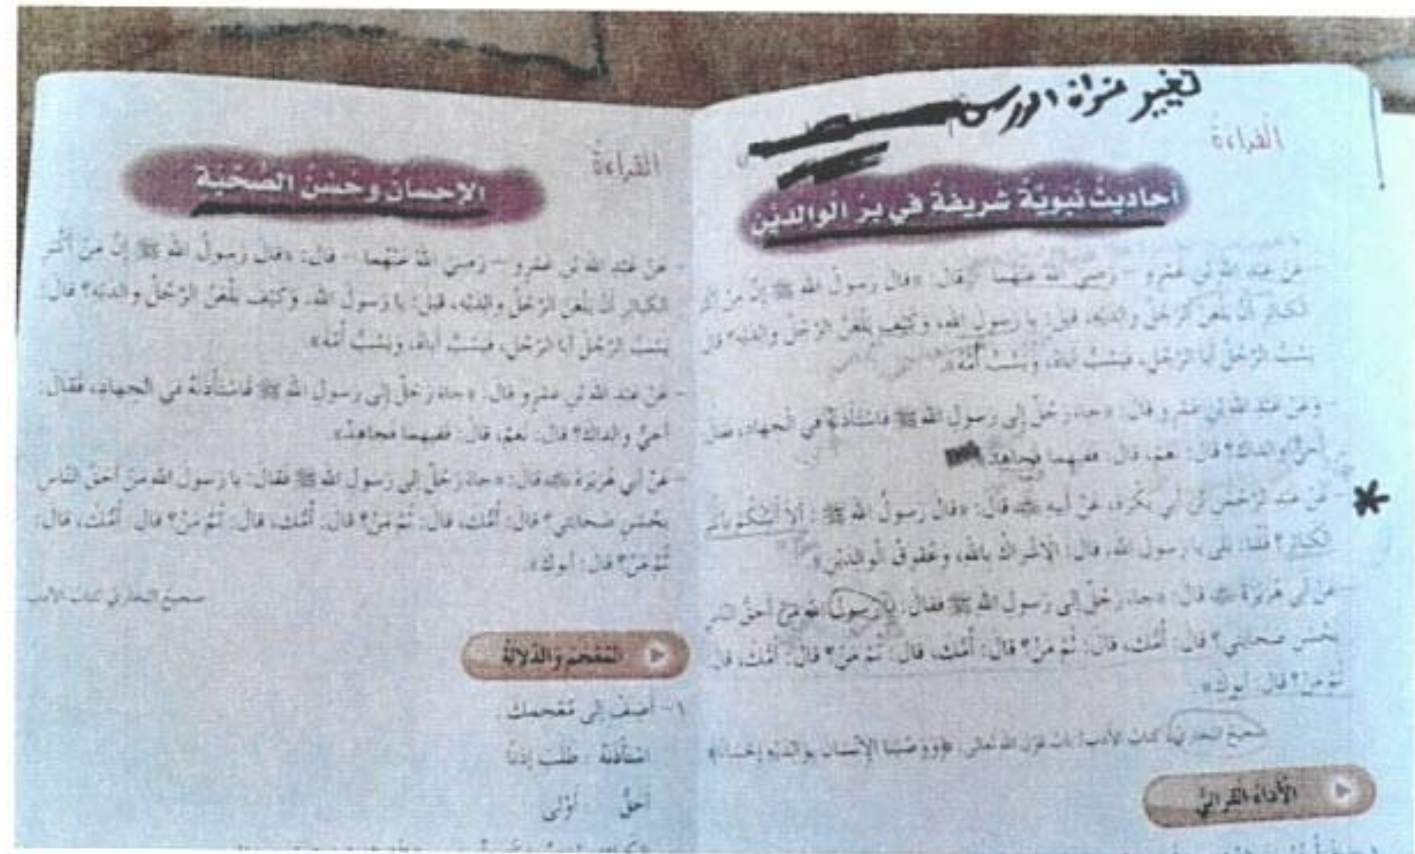 تغيير عنوان الدرس
القراءة
أحاديث نبوية شريفة في بر الوالدين
- عن عبد الله بن عمرو – رضي الله عنهما – قال: «قال رسول الله ﷺ إن من أكبر
الكبائر أن يلعن الرجل والديه، قيل: يا رسول الله، وكيف يلعن الرجل والديه؟ قال
يسب الرجل أبا الرجل، فيسب أباه، ويسب أمه».
- وعن عبد الله بن عمرو قال: «جاء رجل إلى رسول الله ﷺ فاستأذنه في الجهاد، فقال
أحي والداك؟ قال: نعم، قال: ففيهما فجاهد»
- عن عبد الرحمن بن أبي بكرة، عن أبيه قال: «قال رسول الله ﷺ: ألا أنبئكم بأكبر
الكبائر؟ قلنا: بلى يا رسول الله، قال: الإشراك بالله، وعقوق الوالدين».
- عن أبي هريرة قال: «جاء رجل إلى رسول الله ﷺ فقال: يا رسول الله من أحق الناس
بحسن صحابتي؟ قال: أمك، قال: ثم من؟ قال: أمك، قال: ثم من؟ قال: أمك، قال
ثم من؟ قال: أبوك».
صحيح البخاري كتاب الأدب: باب قول الله تعالى: ﴿ووصينا الإنسان بوالديه إحسانا﴾
الأداء القرائي
القراءة
الإحسان وحسن الصحبة
- عن عبد الله بن عمرو – رضي الله عنهما – قال: «قال رسول الله ﷺ إن من أكبر
الكبائر أن يلعن الرجل والديه، قيل: يا رسول الله، وكيف يلعن الرجل والديه؟ قال:
يسب الرجل أبا الرجل، فيسب أباه، ويسب أمه».
- عن عبد الله بن عمرو قال: «جاء رجل إلى رسول الله ﷺ فاستأذنه في الجهاد، فقال:
أحي والداك؟ قال: نعم، قال: ففيهما فجاهد».
- عن أبي هريرة قال: «جاء رجل إلى رسول الله ﷺ فقال: يا رسول الله من أحق الناس
بحسن صحابتي؟ قال: أمك، قال: ثم من؟ قال: أمك، قال: ثم من؟ قال: أمك، قال:
ثم من؟ قال: أبوك».
صحيح البخاري كتاب الأدب
المعجم والدلالة
١- أضف إلى معجمك
استأذنه : طلب إذنا
أحق : أولى